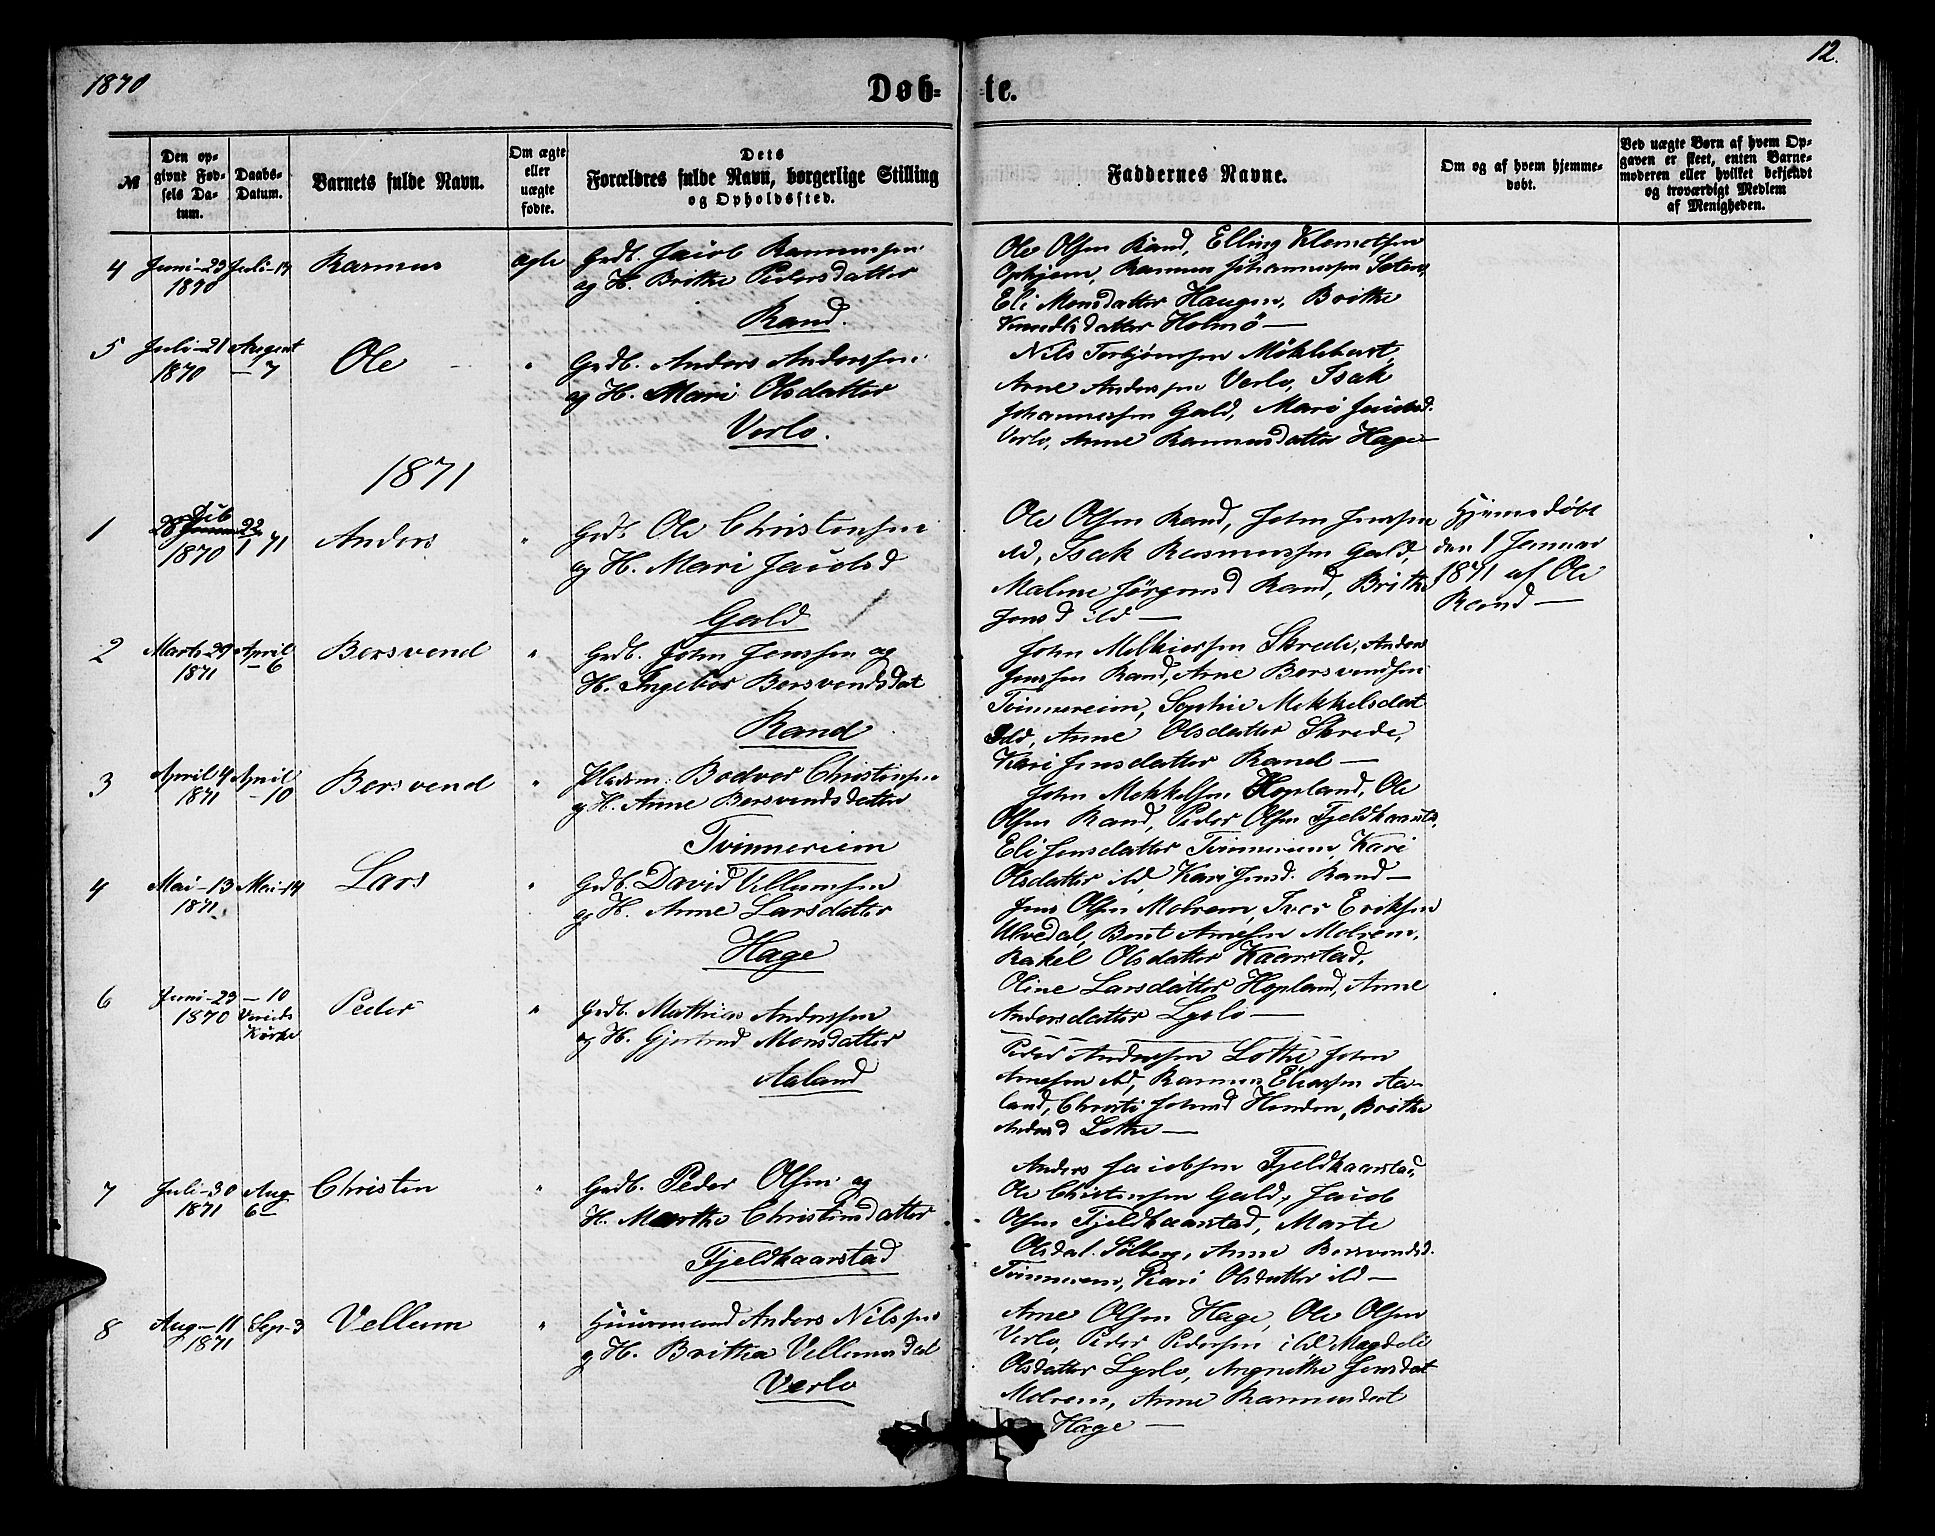 1870
Døb-
te.
12.
№
Den op-
givne Fød-
sels Da-
tum.
Daabs-
Datum.
Barnets fulde Navn.
Om ægte
eller
uægte
fødte.
Dets
Forældres fulde Navn, borgerlige Stilling
og Opholdssted.
Faddernes Navne.
Om og af hvem hjemme-
døbt.
Ved uægte Børn af hvem Op-
gaven er skeet, enten Barne-
moderen eller hvilket bekjendt
og troværdigt Medlem
af Menigheden.
4
Juni-23
1870
Juli-14
Rasmus
Ægte
Grdb. Jacob Rasmussen
og H. Brithe Pedersdatter
Rand.
Ole Olsen Rand, Elling Klemetsen
Opheim, Rasmus Johannessen
Eli Monsdatter Haugen, Brithe
Knudtsdatter Holmö—
5
Juli-21
1870
August
- 7
Ole
"
Grdb. Anders Anderssen
og H. Mari Olsdatter
Verlo.
Nils Torbjörnsen Möklebust,
Arne Anderssen Verlo, Isak
Johannessen Gald, Mari Jacobsd.
Verlo, Anne Rasmusdatter Hage—
1871
1
28
1870
22
1 71
Anders
"
Grdb. Ole Christensen
og H. Mari Jacobsd
Gald
Ole Olsen Rand, John Jenssen
ild, Isak Rasmussen Gald,
Malene Jørgensd Rand, Brithe
Jensd ild—
Hjemmedøbt
den 1 Januar
1871 af Ole
Rand—
2
Marts-29
1871
April
- 6
Bersvend
"
Grdb. John Jenssen og
H. Ingebor Bersvendsdat
Rand
John Melkiorssen Skrede, Anders
Jenssen Rand, Arne Bersvendsen
Tvinnereim, Sophie Mekkelsdat
ild, Anne Olsdatter Skrede,
Kari Jensdatter Rand—
3
April 4
1871
April
- 10
Bersvend
"
Pladsm. Bodver Christensen
og H. Anne Bersvendsdatter
Tvinnereim
John Mekkelsen Hopland, Ole
Olsen Rand, Peder Olsen Fjeldkaarsta,
Eli Jensdatter Tvinnereim, Kari
Olsdatter ild, Kari Jensd. Rand—
4
Mai-13
1871
Mai-14
Lars
"
Grdb. David Vellumsen
og H. Anne Larsdatter
Hage
Jens Olsen Molrem, Iver Eriksen
Ulvedal, Bent Arnesen Molrem,
Rakel Olsdatter Kaarstad,
Oline Larsdatter Hopland, Anne
Andersdatter Lyslo—
6
Juni-23
1870
- 10
Vereids
Kirke
Peder
"
Grdb. Mathias Anderssen
og H. Gjertrud Monsdatter
Aaland
Peder Anderssen Lothe, John
Arnesen ild, Rasmus Eliassen Aa-
land, Christi Johnsd Henden, Brithe
Andersd Lothe—
7
Juli-30
1871
Aug
6
Christen
"
Grdb. Peder Olsen og
H. Marthe Christensdatter
Fjeldkaarstad
Anders Jacobsen Fjeldkaarstad,
Ole Christensen Gald, Jacob
Olsen Fjeldkaarstad, Marte
Olsdat. Solberg, Anne Bersvendsd.
Tvinnereim, Kari Olsdatter ild—
8
Aug-11
1871
Sep-3
Vellum
"
Huusmand Anders Nilssen
og H. Brithe Vellumsdat
Verlo
Arne Olsen Hage, Ole Olsen
Verlo, Peder Pedersen ild Magdeli
Olsdatter Lyslo, Angnethe Jensdat
Molrem, Anne Rasmusdat
Hage—